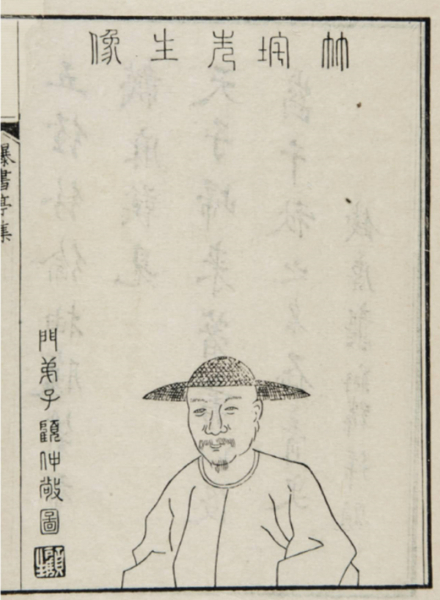 竹垞先生像
門弟子顧仲敬圖
曝書亭集